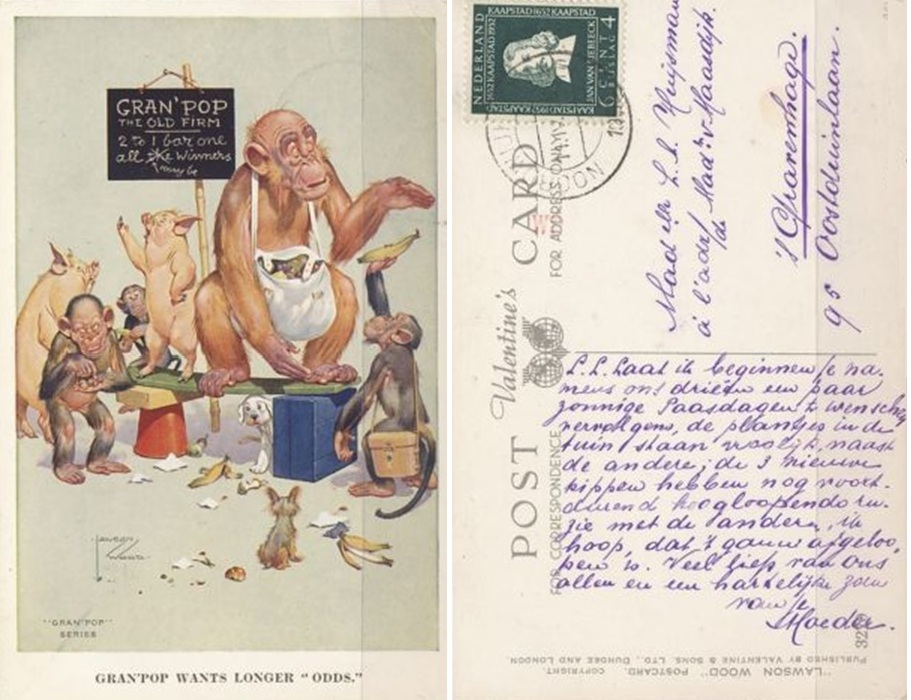 GRAN'POP
THE OLD FIRM
2 to 1 bar one
all the Winners
may be
Lawson
Wood
"GRAN'POP"
SERIES
GRAN'POP WANTS LONGER "ODDS."
NEDERLAND
1652 KAAPSTAD 1952
KAAPSTAD 1652 KAAPSTAD
JAN VAN RIEBEECK
6 CENT 4
BIJSLAG
KAAPSTAD 1952 KAAPSTAD
POST CARD
Valentine's
FOR CORRESPONDENCE
FOR ADDRESS ONLY
à l'adr. Mad. v. Haasdijk.
's Gravenhage.
95 Oostduinlaan.
L.L. Laat ik beginnen je na-
mens ons drieën een paar
zonnige Paasdagen te wenschen
vervolgens, de plantjes in de
tuin staan vroolijk naast
de andere; de 3 nieuwe
kippen hebben nog voort-
durend hoogloopende ru-
zie met de andere, ik
hoop, dat 't gauw afgeloo-
pen is. Veel liefs van ons
allen en een hartelijke zoen
van je
Moeder.
"LAWSON WOOD" POSTCARD. COPYRIGHT.
PUBLISHED BY VALENTINE & SONS, LTD., DUNDEE AND LONDON